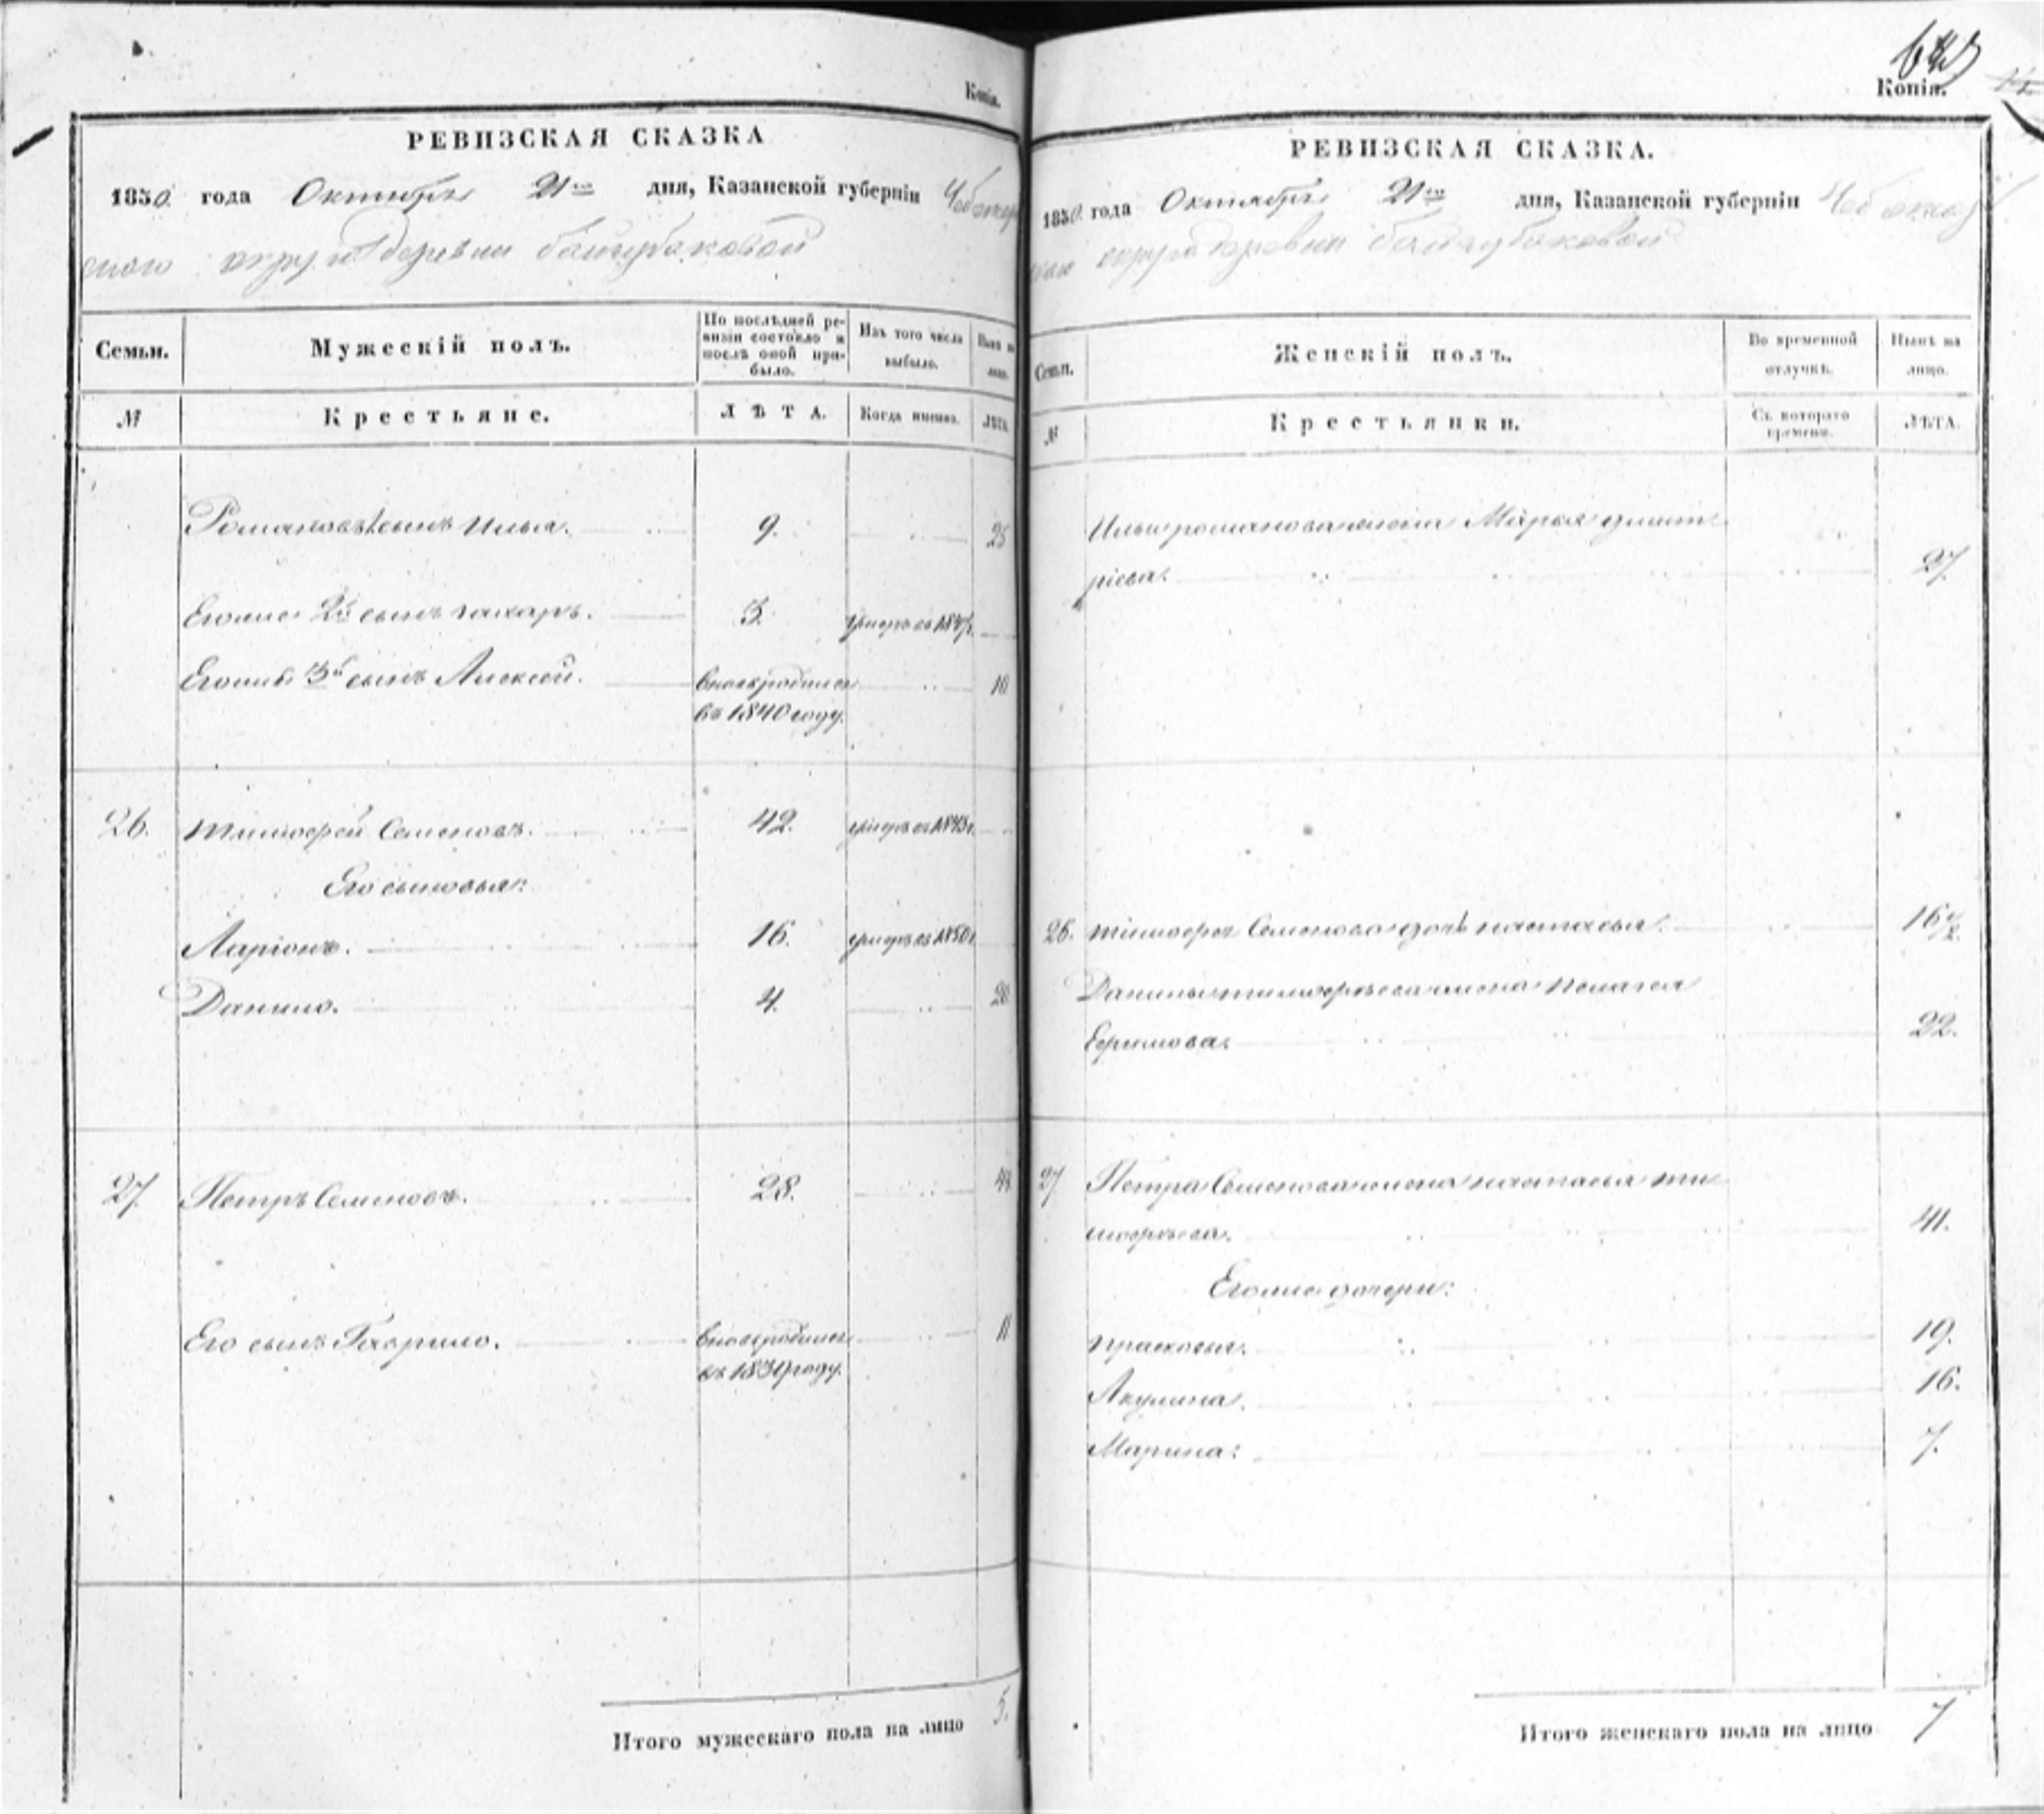 Копія.
РЕВИЗСКАЯ СКАЗКА
1850 года Октября 21го дня, Казанской губерніи Чебоксар
скаго округи деревни Байгубаковой
Семьи.
Мужескій полъ.
По послѣдней ре-
визіи состояло и
послѣ оной при-
было.
Изъ того числа
выбыло.
Нынѣ на
лицо.
№
Крестьяне.
ЛѢТА.
Когда именно.
ЛѢТА.
Романовъ 1 сынъ Илья. 9. 25
Егоже 2й сынъ Захаръ. 3. умеръ въ 1847г.
Егоже 3й сынъ Алексей. вновь родился 10
въ 1840 году.
26. Тимофей Семеновъ. 42. умеръ въ 1843г.
Его сыновья:
Ларіонъ. 16. умеръ въ 1850г.
Данило. 4. 20
27. Петръ Семеновъ. 28. 44
Его сынъ Гаврило. вновь родился 11
въ 1839 году.
Итого мужескаго пола на лицо 5.
Копія.
РЕВИЗСКАЯ СКАЗКА.
1850 года Октября 21го дня, Казанской губерніи Чебоксар
скаго округа деревни Байгубаковой
Семьи.
Женскій полъ.
Во временной
отлучкѣ.
Нынѣ на
лицо.
№
Крестьянки.
Съ котораго
времени.
ЛѢТА.
Ильи романова жена Марья дмит
ріева. 27.
26. тимофея Семенова дочь настасья. 16
Данилы тимофѣева жена пелагея
Ефимова. 22.
27 Петра Семенова жена настасья ти
мофѣева. 41.
Егоже дочери:
прасковья. 19.
Акулина. 16.
Марина: 7.
Итого женскаго пола на лицо 7